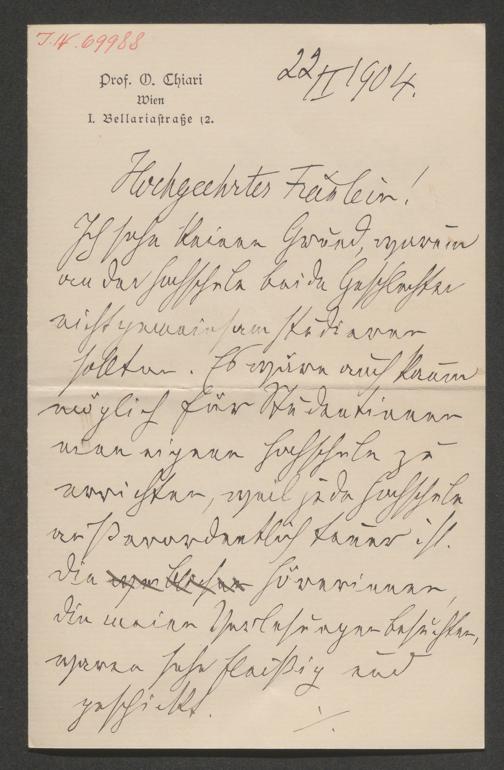 I.N. 69988
Prof. O. Chiari
Wien
I. Bellariastraße 12.
22/II 1904.
Hochgeehrtes Fräulein!
Ich sehe keinen Grund, warum
an der Hochschule beide Geschlechter
nicht gemeinsam studieren
sollten. Es wäre auch kaum
möglich für Studentinnen
eine eigene Hochschule zu
errichten, weil jede Hochschule
außerordentlich teuer ist.
Die weiblichen Hörerinnen,
die meine Vorlesungen besuchten,
waren sehr fleißig und
geschickt. ./.